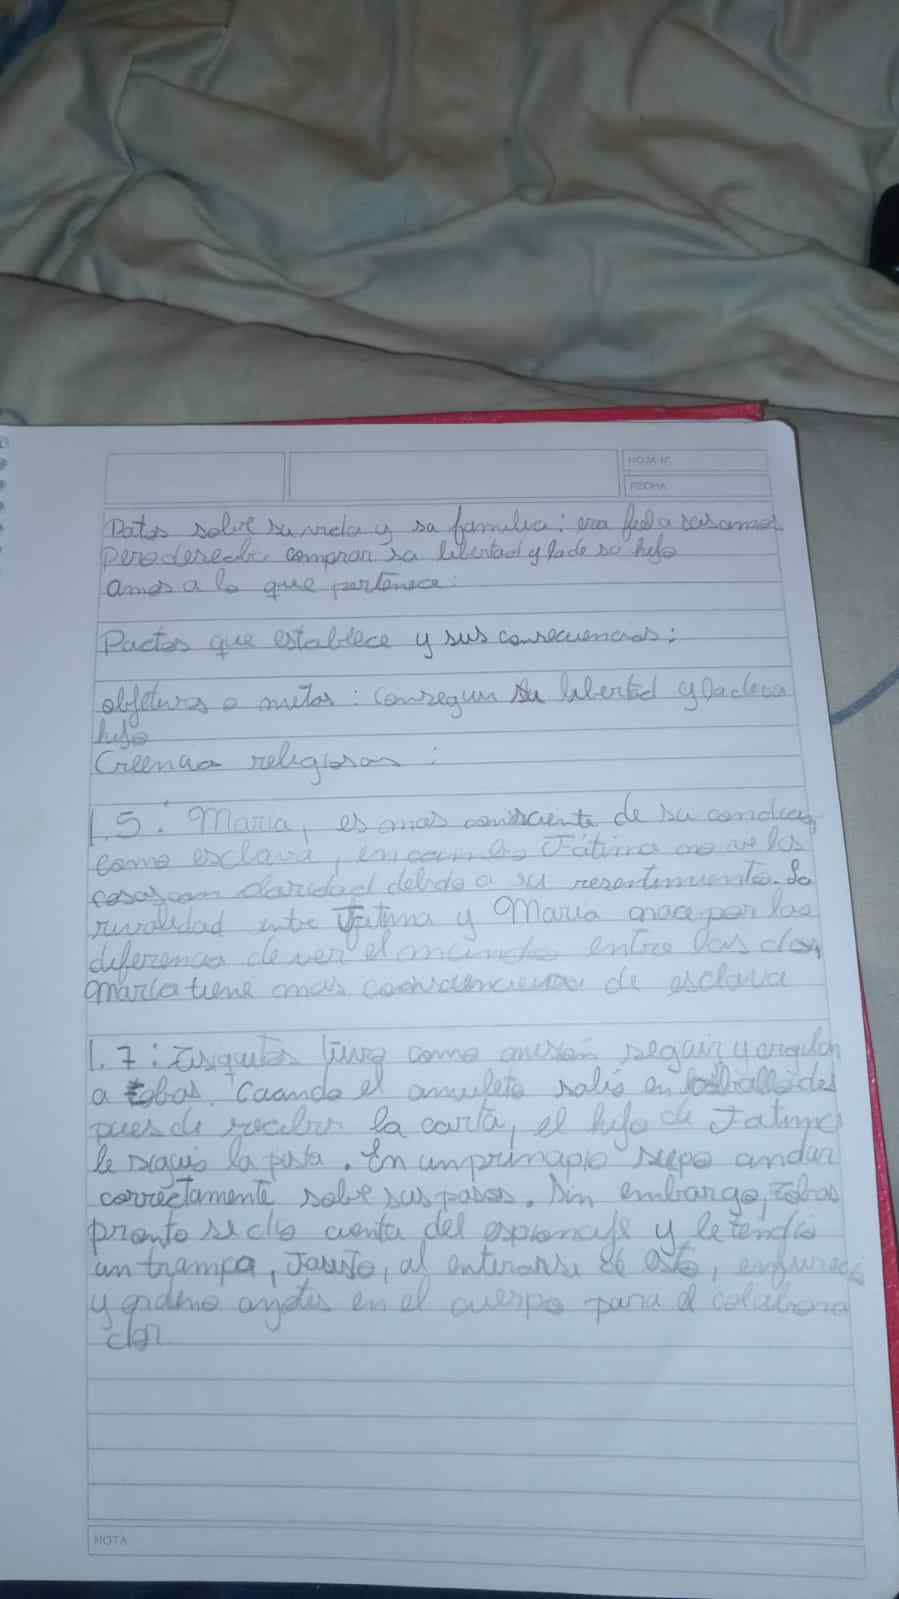 HOJA Nº
FECHA
Datos sobre su vida y su familia: era fiel a sus amos
pero deseaba comprar su libertad y la de su hijo
amos a lo que pertenece:
Pactos que establece y sus consecuencias:
objetivos o metas: Conseguir su libertad y la de su
hijo
Creencias religiosas:
1.5: María, es mas consciente de su condición
como esclava, en cambio Fátima no ve las
cosas con claridad debido a su resentimiento. La
rivalidad entre Fatima y María nace por la
diferencia de ver el mundo entre las dos,
María tiene mas de esclava
1.7: tuvo como misión seguir y
a tobas. Cuando el amuleto salió en des
pues de recibir la carta, el hijo de Fatima
le siguio la pista. En un principio supo andar
correctamente sobre sus pasos. Sin embargo, tobas
pronto se dio cuenta del espionaje y le tendio
un trampa, Justo, al enterarse de esto, enfureció
y ordeno azotes en el cuerpo para el colabora
dor
NOTA